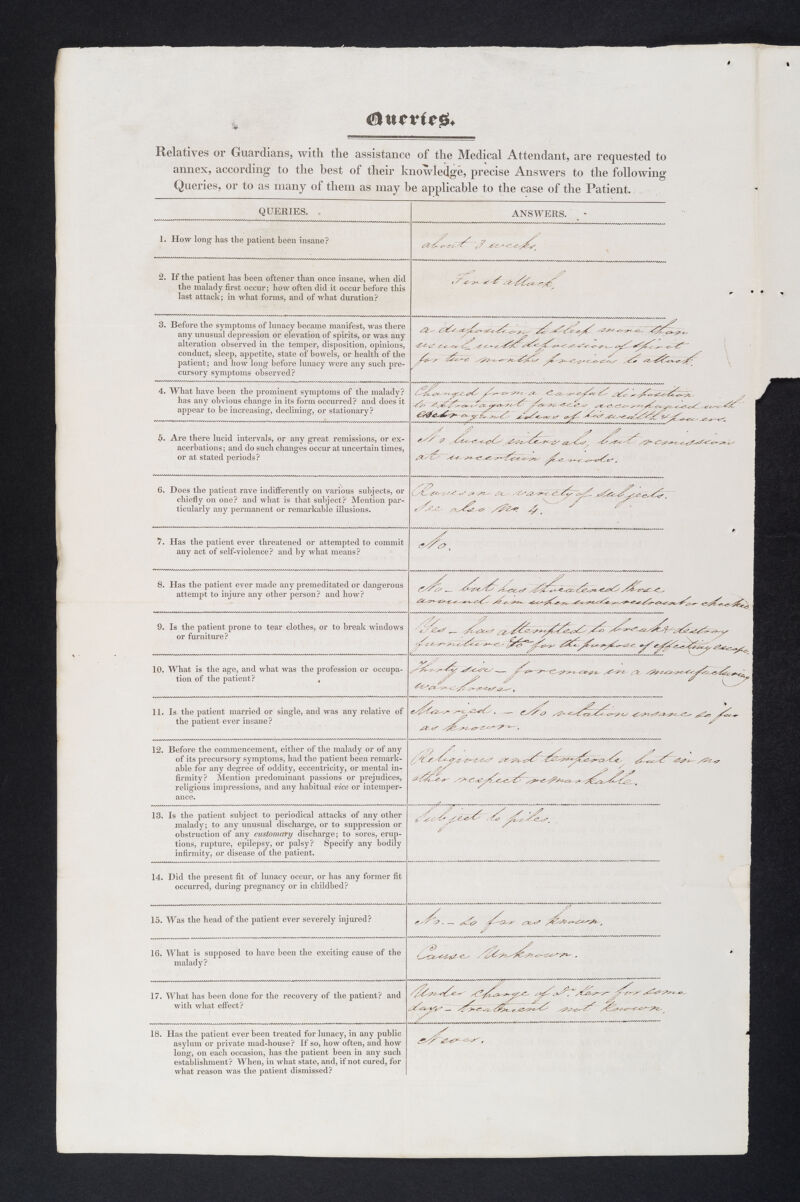 Queries.
Relatives or Guardians, with the assistance of the Medical Attendant, are requested to
annex, according to the best of their knowledge, precise Answers to the following
Queries, or to as many of them as may be applicable to the case of the Patient.
QUERIES.
ANSWERS.
1. How long has the patient been insane?
about 3 weeks.
2. If the patient has been oftener than once insane, when did
the malady first occur; how often did it occur before this
last attack; in what forms, and of what duration?
First attack.
3. Before the symptoms of lunacy became manifest, was there
any unusual depression or elevation of spirits, or was any
alteration observed in the temper, disposition, opinions,
conduct, sleep, appetite, state of bowels, or health of the
patient; and how long before lunacy were any such pre-
cursory symptoms observed?
a disposition to sleep more than
usual with depression of spirit
for two months previous to attack.
4. What have been the prominent symptoms of the malady?
has any obvious change in its form occurred? and does it
appear to be increasing, declining, or stationary?
Changed from a careful disposition
to extravagant fancies accompanied with
extravagant ideas of his wealth & power.
5. Are there lucid intervals, or any great remissions, or ex-
acerbations; and do such changes occur at uncertain times,
or at stated periods?
No lucid intervals, but remissions
at uncertain periods.
6. Does the patient rave indifferently on various subjects, or
chiefly on one? and what is that subject? Mention par-
ticularly any permanent or remarkable illusions.
Raves on a variety of subjects.
See also No 4.
7. Has the patient ever threatened or attempted to commit
any act of self-violence? and by what means?
No.
8. Has the patient ever made any premeditated or dangerous
attempt to injure any other person? and how?
No – but has threatened those
around him when under restraint or checked
9. Is the patient prone to tear clothes, or to break windows
or furniture?
Yes – has attempted to break & destroy
furniture &c for the purpose of effecting escape.
10. What is the age, and what was the profession or occupa-
tion of the patient?
Thirty six – foreman in a manufacturing
warehouse.
11. Is the patient married or single, and was any relative of
the patient ever insane?
Married. – No relation insane so far
as known.
12. Before the commencement, either of the malady or of any
of its precursory symptoms, had the patient been remark-
able for any degree of oddity, eccentricity, or mental in-
firmity? Mention predominant passions or prejudices,
religious impressions, and any habitual vice or intemper-
ance.
Religious and temperate, but in no
other respect remarkable.
13. Is the patient subject to periodical attacks of any other
malady; to any unusual discharge, or to suppression or
obstruction of any customary discharge; to sores, erup-
tions, rupture, epilepsy, or palsy? Specify any bodily
infirmity, or disease of the patient.
Subject to piles.
14. Did the present fit of lunacy occur, or has any former fit
occurred, during pregnancy or in childbed?
15. Was the head of the patient ever severely injured?
No. – so far as known.
16. What is supposed to have been the exciting cause of the
malady?
Cause Unknown.
17. What has been done for the recovery of the patient? and
with what effect?
Under charge of Dr. Kerr for some
days – treatment not known.
18. Has the patient ever been treated for lunacy, in any public
asylum or private mad-house? If so, how often, and how
long, on each occasion, has the patient been in any such
establishment? When, in what state, and, if not cured, for
what reason was the patient dismissed?
Never.